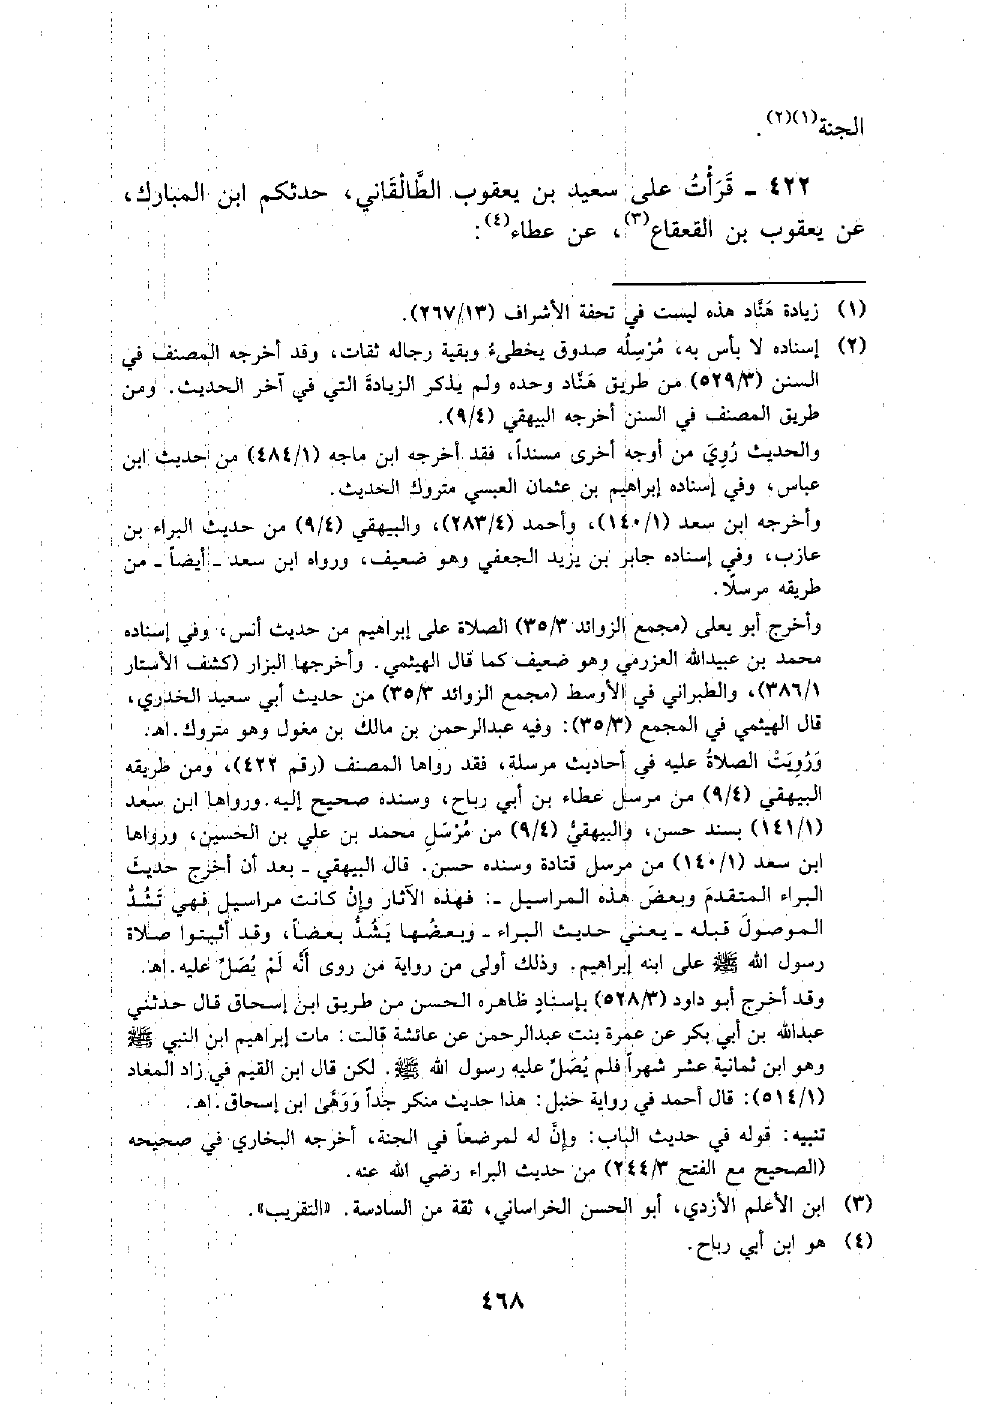 الجنة(١)(٢).
٤٢٢ ـ قَرَأْتُ على سعيد بن يعقوب الطَّالْقَاني، حدثكم ابن المبارك،
عن يعقوب بن القعقاع(٣)، عن عطاء(٤):
(١) زيادة هَنَّاد هذه ليست في تحفة الأشراف (٢٦٧/١٣).
(٢) إسناده لا بأس به، مُرْسِلُه صدوق يخطىءُ وبقية رجاله ثقات، وقد أخرجه المصنف في
السنن (٥٢٩/٣) من طريق هَنَّاد وحده ولم يذكر الزيادةَ التي في آخر الحديث. ومن
طريق المصنف في السنن أخرجه البيهقي (٩/٤).
والحديث رُوِيَ من أوجه أخرى مسنداً، فقد أخرجه ابن ماجه (٤٨٤/١) من حديث ابن
عباس، وفي إسناده إبراهيم بن عثمان العبسي متروك الحديث.
وأخرجه ابن سعد (١٤٠/١)، وأحمد (٢٨٣/٤)، والبيهقي (٩/٤) من حديث البراء بن
عازب، وفي إسناده جابر بن يزيد الجعفي وهو ضعيف، ورواه ابن سعد ـ أيضاً ـ من
طريقه مرسلًا.
وأخرج أبو يعلى (مجمع الزوائد ٣٥/٣) الصلاة على إبراهيم من حديث أنس، وفي إسناده
محمد بن عبيدالله العزرمي وهو ضعيف كما قال الهيثمي. وأخرجها البزار (كشف الأستار
٣٨٦/١)، والطبراني في الأوسط (مجمع الزوائد ٣٥/٣) من حديث أبي سعيد الخدري،
قال الهيثمي في المجمع (٣٥/٣): وفيه عبدالرحمن بن مالك بن مغول وهو متروك. اهـ.
وَرُوِيَتْ الصلاةُ عليه في أحاديث مرسلة، فقد رواها المصنف (رقم ٤٢٢)، ومن طريقه
البيهقي (٩/٤) من مرسل عطاء بن أبي رباح، وسنده صحيح إليه. ورواها ابن سعد
(١٤١/١) بسند حسن، والبيهقيُّ (٩/٤) من مُرْسَلِ محمد بن علي بن الحسين، ورواها
ابن سعد (١٤٠/١) من مرسل قتادة وسنده حسن. قال البيهقي ـ بعد أن أخرج حديثَ
البراء المتقدمَ وبعضَ هذه المراسيل ـ: فهذه الآثار وإنْ كانت مراسيل فهي تَشُدُّ
الموصولَ قبله ـ يعني حديث البراء ـ وبعضُها يَشُدُّ بعضاً، وقد أثبتوا صلاة
رسول الله ﷺ على ابنه إبراهيم. وذلك أولى من رواية من روى أنَّه لَمْ يُصَلِّ عليه. اهـ.
وقد أخرج أبو داود (٥٢٨/٣) بإسنادٍ ظاهره الحسن من طريق ابن إسحاق قال حدثني
عبدالله بن أبي بكر عن عمرة بنت عبدالرحمن عن عائشة قالت: مات إبراهيم ابن النبي ﷺ
وهو ابن ثمانية عشر شهراً فلم يُصَلِّ عليه رسول الله ﷺ. لكن قال ابن القيم في زاد المعاد
(٥١٤/١): قال أحمد في رواية حنبل: هذا حديث منكر جداً وَوَهَّى ابن إسحاق. اهـ.
تنبيه: قوله في حديث الباب: وإنَّ له لمرضعاً في الجنة، أخرجه البخاري في صحيحه
(الصحيح مع الفتح ٢٤٤/٣) من حديث البراء رضي الله عنه.
(٣) ابن الأعلم الأزدي، أبو الحسن الخراساني، ثقة من السادسة. «التقريب».
(٤) هو ابن أبي رباح.
٤٦٨